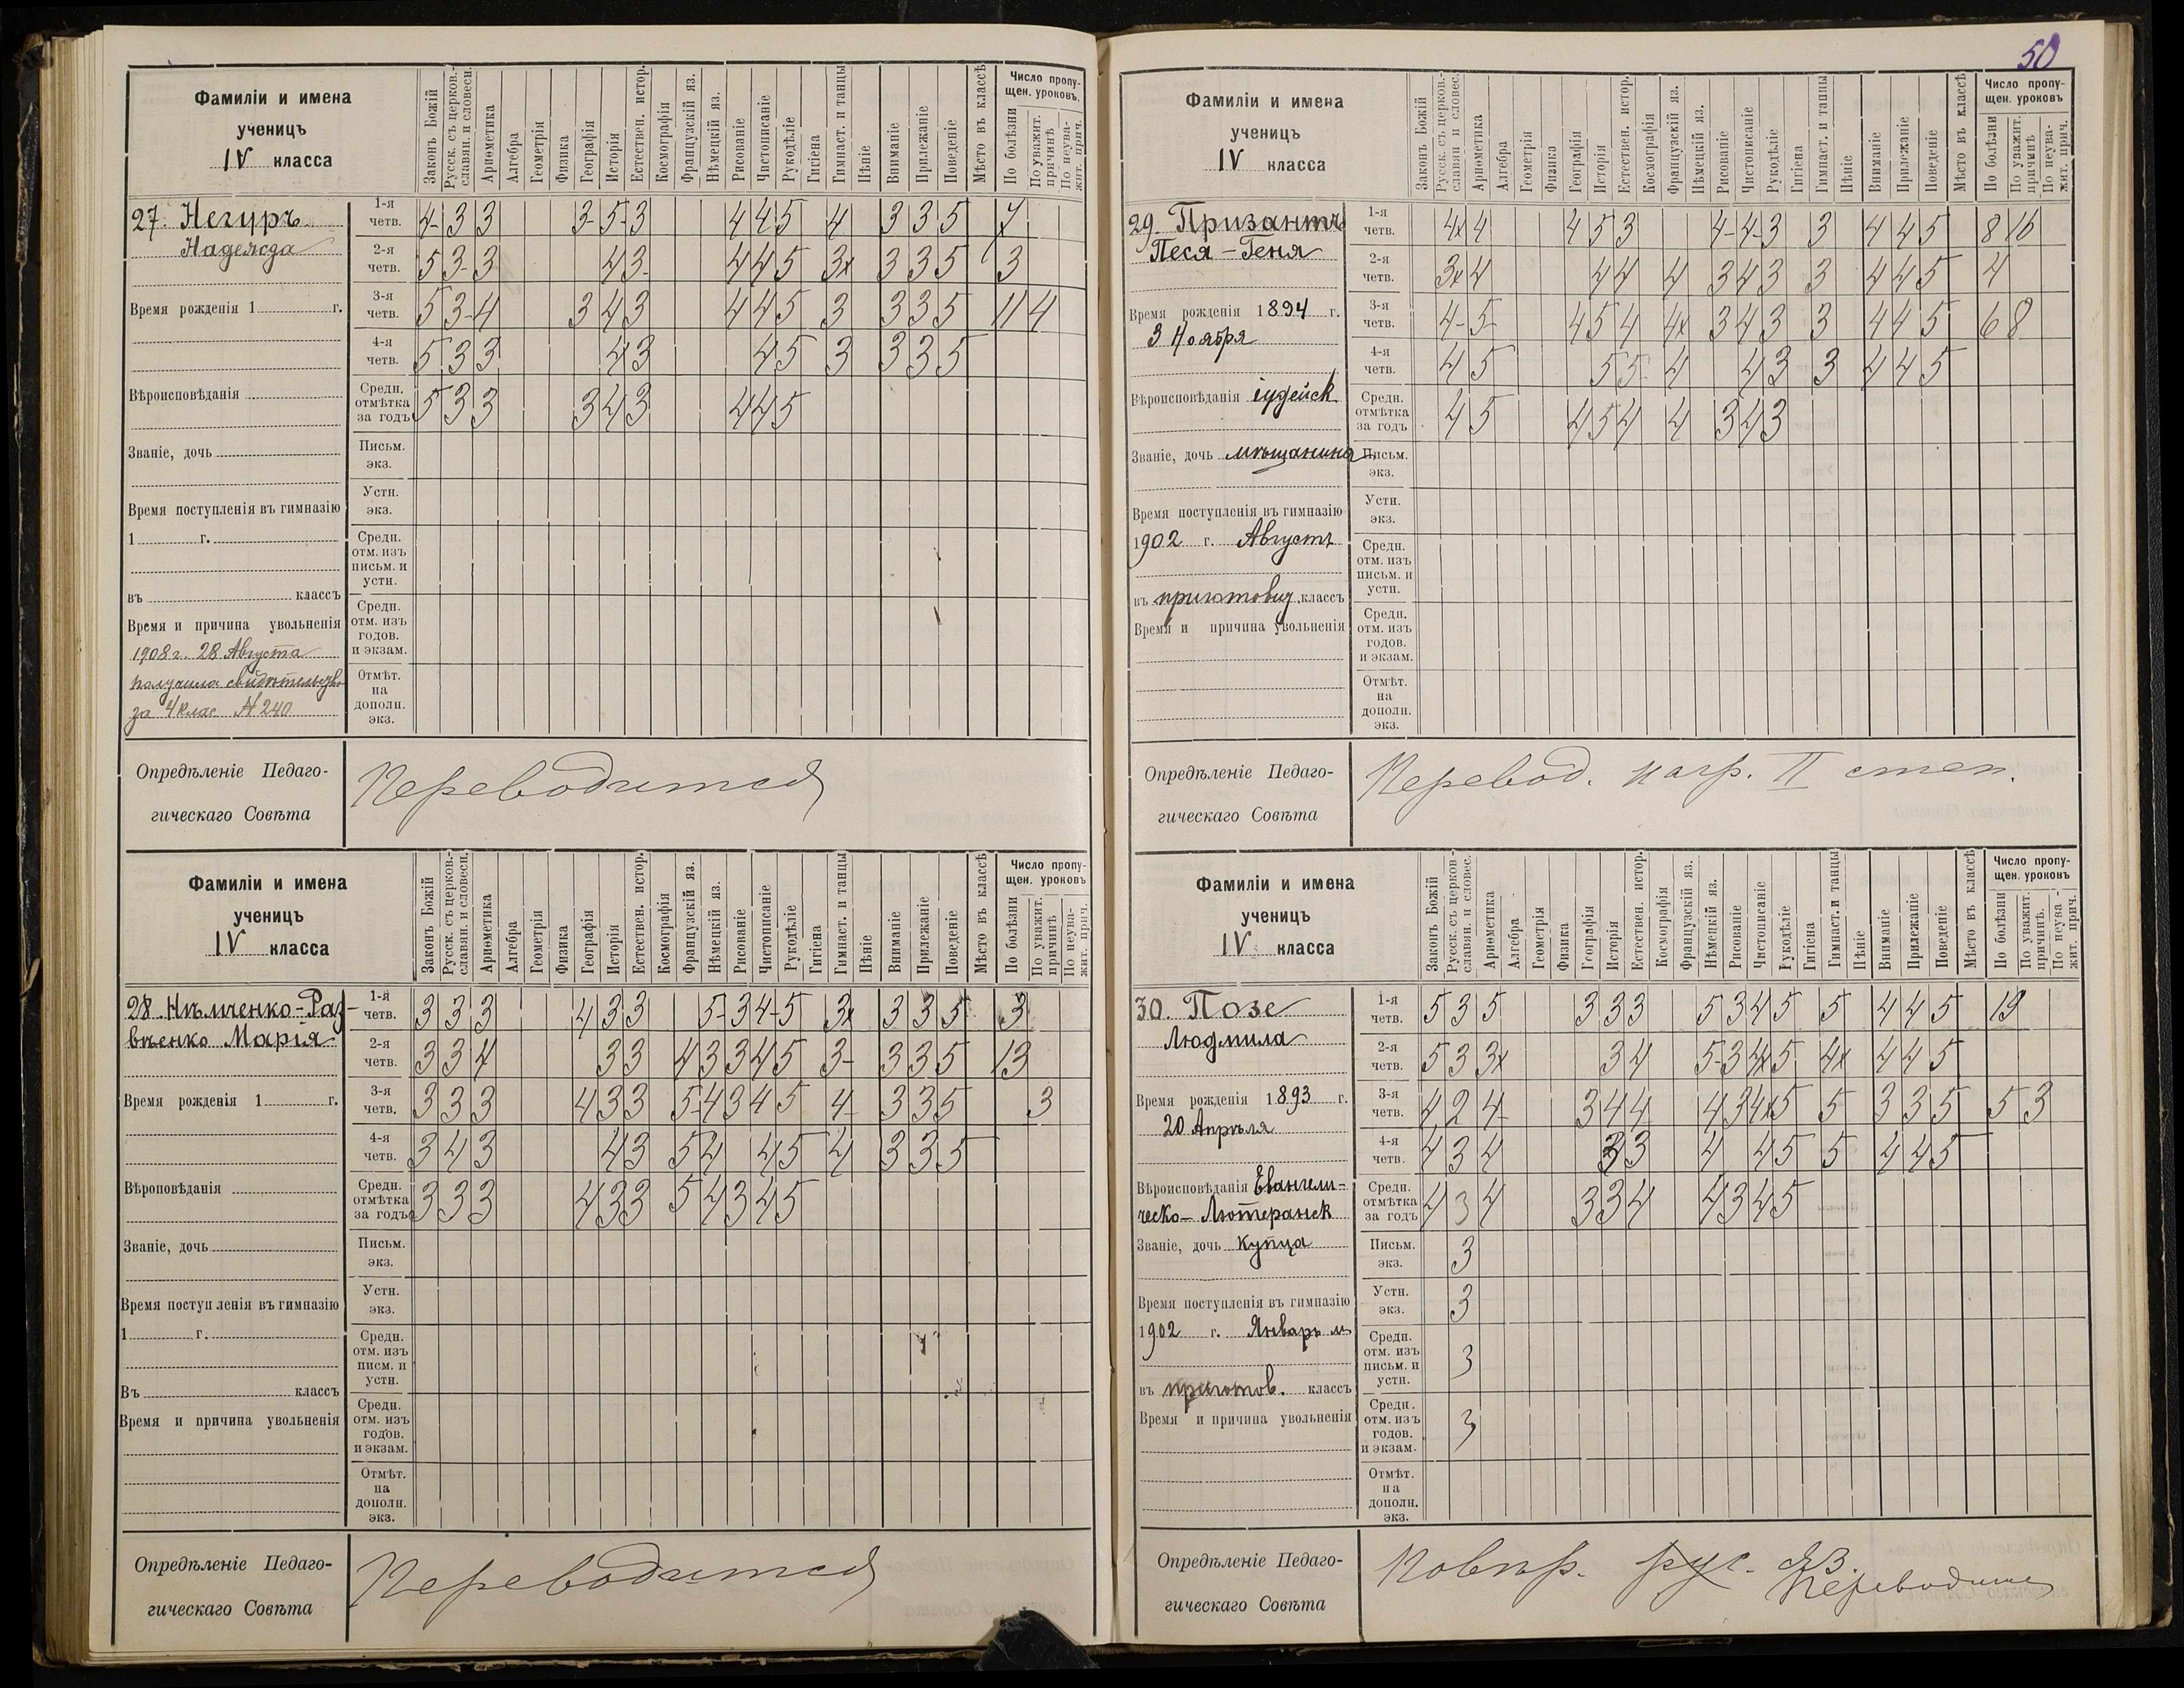 50
Фамиліи и имена
ученицъ
IV класса
Законъ Божій
Русск. съ церков.-
славян. и словесн.
Ариөметика
Алгебра
Геометрія
Физика
Географія
Исторія
Естествен. истор.
Космографія
Французскій яз.
Нѣмецкій яз.
Рисованіе
Чистописаніе
Рукодѣліе
Гигіена
Гимнаст. и танцы
Пѣніе
Вниманіе
Прилежаніе
Поведеніе
Мѣсто въ классѣ
Число пропу-
щен. уроковъ.
По болѣзни
По уважит.
причинѣ
По неува-
жит. прич.
27. Негуръ
Надежда
1-я
четв. 4- 3 3 3- 5- 3 4 4 5 4 3 3 5 7
2-я
четв. 5 3- 3 4 3- 4 4 5 3х 3 3 5 3
Время рожденія 1 г.
3-я
четв. 5 3- 4 3 4 3 4 4 5 3 3 3 5 11 4
4-я
четв. 5 3 3 4 3 4 5 3 3 3 5
Вѣроисповѣданія
Средн.
отмѣтка
за годъ 5 3 3 3 4 3 4 4 5
Званіе, дочь
Письм.
экз.
Время поступленія въ гимназію
1 г.
Устн.
экз.
Средн.
отм. изъ
письм. и
устн.
въ классъ
Время и причина увольненія
1908 г. 28 Августа
получила свидѣтельство
за 4 клас № 240
Средн.
отм. изъ
годов.
и экзам.
Отмѣт.
на
дополн.
экз.
Опредѣленіе Педаго-
гическаго Совѣта
Переводится
Фамиліи и имена
ученицъ
IV класса
Законъ Божій
Русск. съ церков.-
славян. и словесн.
Ариөметика
Алгебра
Геометрія
Физика
Географія
Исторія
Естествен. истор.
Космографія
Французскій яз.
Нѣмецкій яз.
Рисованіе
Чистописаніе
Рукодѣліе
Гигіена
Гимнаст. и танцы
Пѣніе
Вниманіе
Прилежаніе
Поведеніе
Мѣсто въ классѣ
Число пропу-
щен. уроковъ
По болѣзни
По уважит.
причинѣ
По неува-
жит. прич.
28. Нѣмченко-Раз-
Марія
1-я
четв. 3 3 3 4 3 3 5- 3 4- 5 3х 3 3 5 3
2-я
четв. 3 3 4 3 3 4 3 3 4 5 3- 3 3 5 13
Время рожденія 1 г.
3-я
четв. 3 3 3 4 3 3 5- 4 3 4 5 4- 3 3 5 3
4-я
четв. 3 4 3 4 3 5 4 4 5 4 3 3 5
Вѣроповѣданія
Средн.
отмѣтка
за годъ 3 3 3 4 3 3 5 4 3 4 5
Званіе, дочь
Письм.
экз.
Время поступленія въ гимназію
1 г.
Устн.
экз.
Средн.
отм. изъ
писм. и
устн.
Въ классъ
Время и причина увольненія
Средн.
отм. изъ
годов.
и экзам.
Отмѣт.
на
дополн.
экз.
Опредѣленіе Педаго-
гическаго Совѣта
Переводится
Фамиліи и имена
ученицъ
IV класса
Законъ Божій
Русск. съ церков.-
славян и словес.
Ариөметика
Алгебра
Геометрія
Физика
Географія
Исторія
Естествен. истор.
Космографія
Французскій яз.
Нѣмецкій яз.
Рисованіе
Чистописаніе
Рукодѣліе
Гигіена
Гимнаст. и танцы
Пѣніе
Вниманіе
Прилежаніе
Поведеніе
Мѣсто въ классѣ
Число пропу-
щен. уроковъ
По болѣзни
По уважит.
причинѣ
По неува-
жит. прич.
29. Призантъ
Песя-Геня
1-я
четв. 4х 4 4 5 3 4- 4- 3 3 4 4 5 8 16
2-я
четв. 3х 4 4 4 4 3 4 3 3 4 4 5 4
Время рожденія 1894 г.
3 Ноября
3-я
четв. 4- 5- 4 5 4 4х 3 4 3 3 4 4 5 6 8
4-я
четв. 4 5 5 5 4 4 3 3 4 4 5
Вѣроисповѣданія іудейск
Средн.
отмѣтка
за годъ 4 5 4 5 4 4 3 4 3
Званіе, дочь мѣщанина
Письм.
экз.
Время поступленія въ гимназію
1902 г. Августъ
Устн.
экз.
Средн.
отм. изъ
письм. и
устн.
въ классъ
Время и причина увольненія
Средн.
отм. изъ
годов.
и экзам.
Отмѣт.
на
дополн.
экз.
Опредѣленіе Педаго-
гическаго Совѣта
Перевод. нагр. II степ.
Фамиліи и имена
ученицъ
IV класса
Законъ Божій
Русск. съ церков-
славян. и словес.
Ариөметика
Алгебра
Геометрія
Физика
Географія
Исторія
Естествен. истор.
Космографія
Французскій яз.
Нѣмецкій яз.
Рисованіе
Чистописаніе
Рукодѣліе
Гигіена
Гимнаст. и танцы
Пѣніе
Вниманіе
Прилежаніе
Поведеніе
Мѣсто въ классѣ
Число пропу-
щен. уроковъ
По болѣзни
По уважит.
причинѣ.
По неува-
жит. прич.
30. Позе
Людмила
1-я
четв. 5 3 5 3 3 3 5 3 4 5 5 4 4 5 19
2-я
четв. 5 3 3х 3 4 5- 3 4х 5 4х 4 4 5
Время рожденія 1893 г.
20 Апрѣля
3-я
четв. 4 2 4- 3 4 4 4 3 4х 5 5 3 3 5 5 3
4-я
четв. 4 3 4 3 3 4 4 5 5 4 4 5
Вѣроисповѣданія Евангели-
ческо-Лютеранск
Средн.
отмѣтка
за годъ 4 3 4 3 3 4 4 3 4 5
Званіе, дочь купца
Письм.
экз. 3
Время поступленія въ гимназію
1902 г. Январь м.
Устн.
экз. 3
Средн.
отм. изъ
письм. и
устн. 3
въ приготов. классъ
Время и причина увольненія
Средн.
отм. изъ
годов.
и экзам. 3
Отмѣт.
на
дополн.
экз.
Опредѣленіе Педаго-
гическаго Совѣта
Повѣр. рус. яз.
Переводится